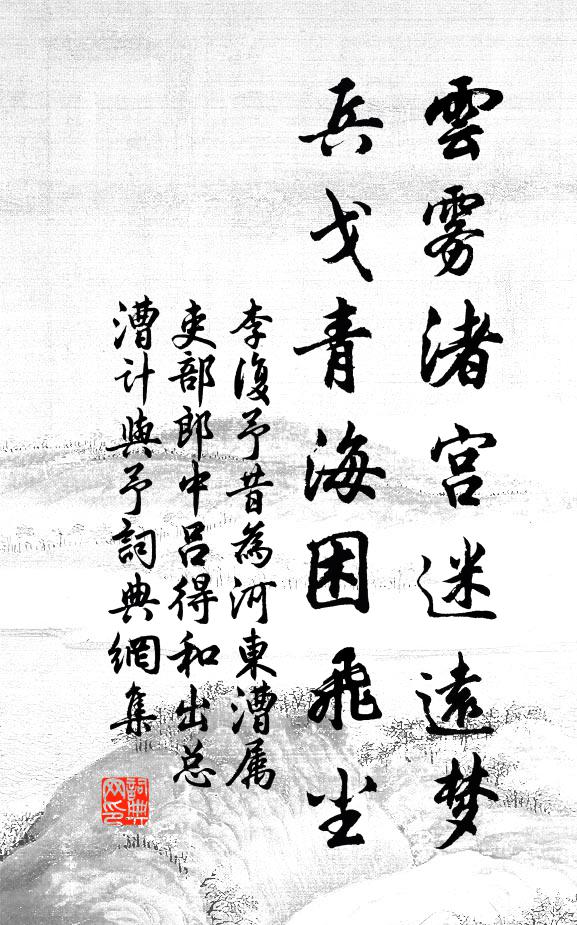 雲雾渚宫迷遠梦
兵戈青海困飛尘
李復予昔為河東漕属
吏部郎中吕得和出总
漕計與予詞典網集
詞典网印